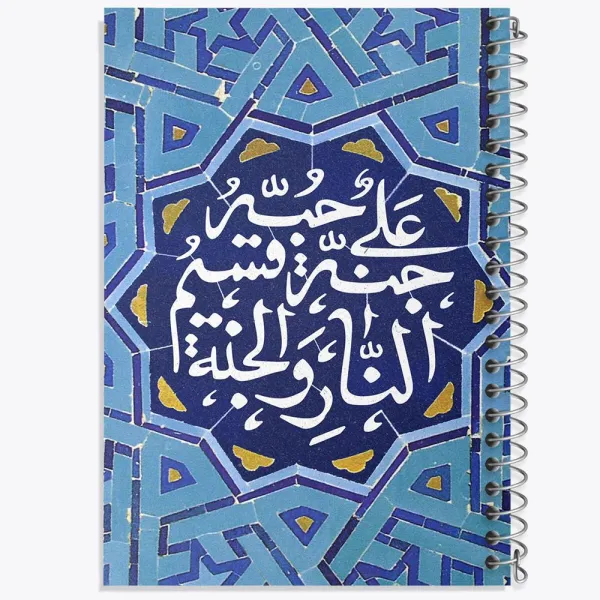 عَلیٌّ حُبُّهُ
جُنَّة قَسیمُ
النَّارِ وَ الجنة